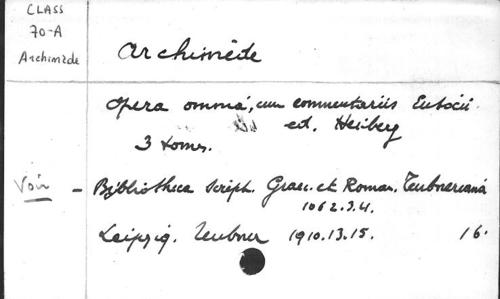 CLASS
70-A
Archimède
Archimède
Opera omnia, cum commentariis Eutocii
ed. Heiberg
3 tomes.
Voir - Bibliotheca Script. Graec. et Roman. Teubneriana
1062.3.4.
Leipzig. Teubner 1910.13.15. 16.